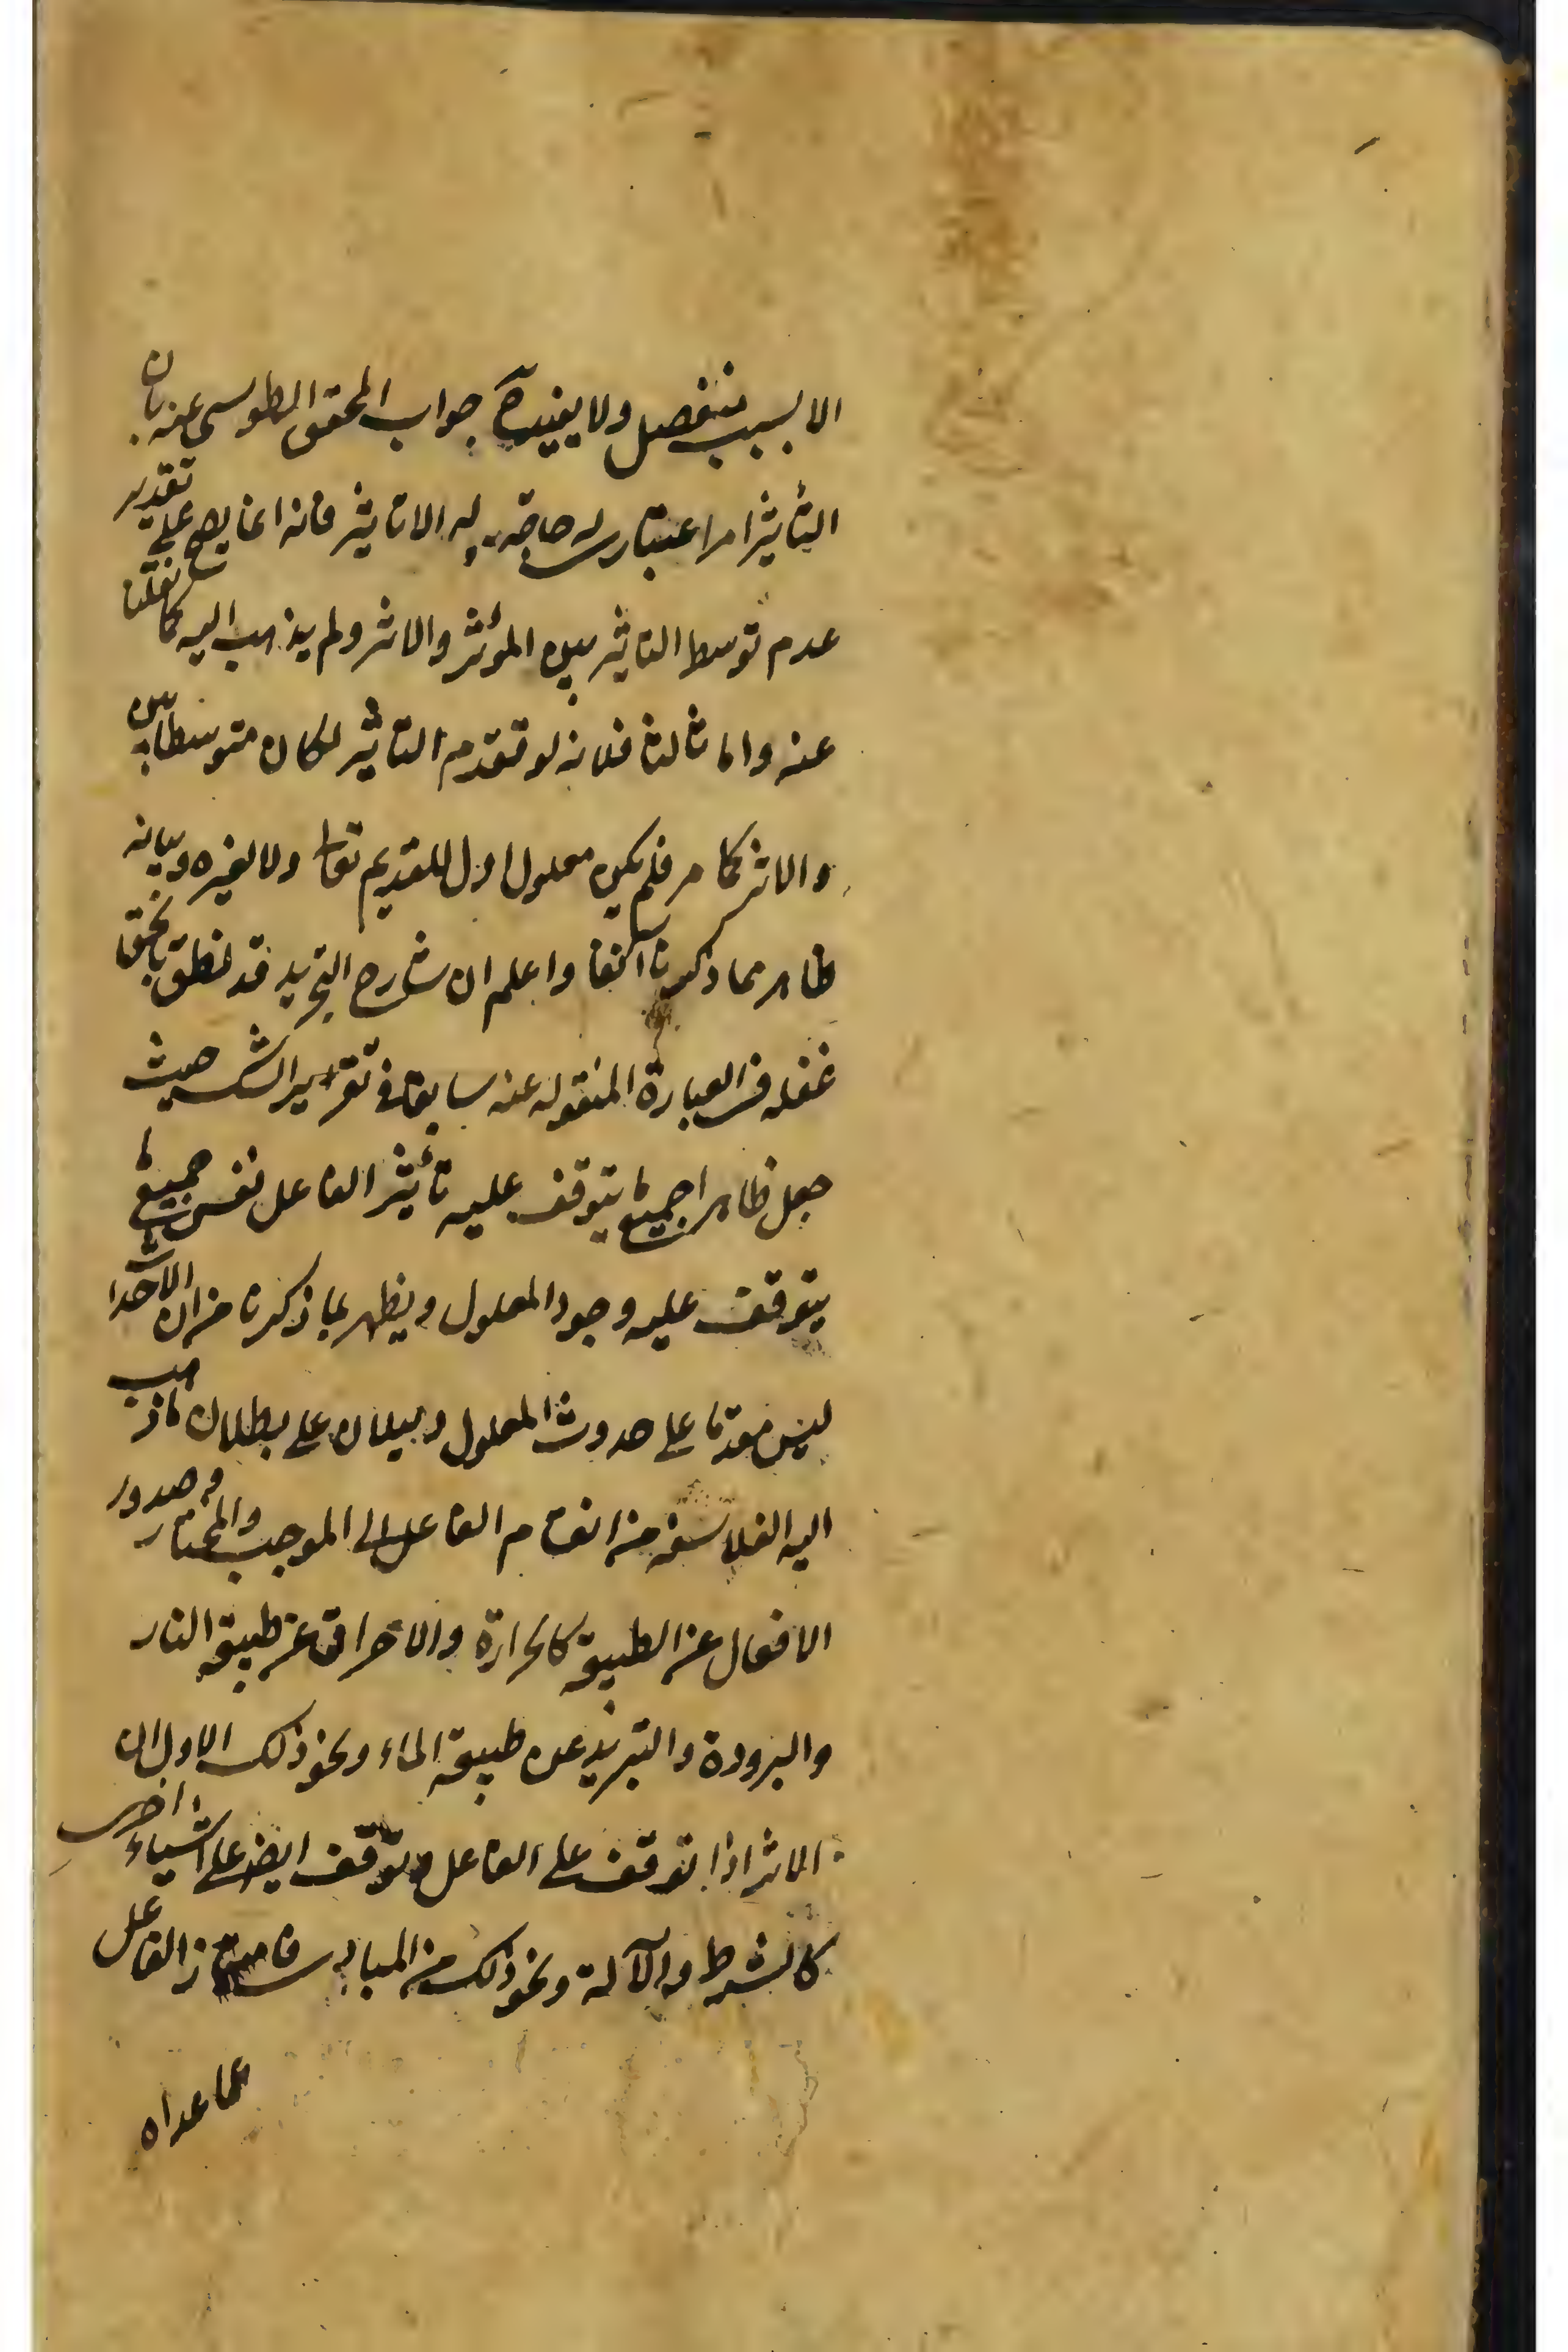 الا بسبب منفصل ولا يفيده جواب المحقق الطوسي عنه بان
التأثير امر اعتباري لا حاجة له الى تاثير فانه انما يصح على تقدير
عدم توسط التاثير بين المؤثر والاثر ولم يذهب اليه كما نقلنا
عنه واما ثالثا فلانه لو تقدم التاثير لكان متوسطا بين
والاثر كما مر فلم يكن معلول اول للقديم تعالى ولا لغيره وبيانه
ظاهر مما ذكرنا آنفا واعلم ان شارح التجريد قد نطق بالحق
غفله في العبارة المنقوله عنه سابقا في تقرير الشك حيث
جعل ظاهرا جميع ما يتوقف عليه تأثير الفاعل نفس جميع ما
يتوقف عليه وجود المعلول ويظهر بما ذكرنا من ان الاحداث
ليس مقدما على حدوث المعلول دليلان على بطلان ما ذهب
اليه الفلاسفه من انقسام الفاعل الى الموجب والمختار وصدور
الافعال عن الطبيعة كالحرارة والاحراق عن طبيعة النار
والبرودة والتبريد عن طبيعة الماء ونحو ذلك الاول ان
الاثر اذا توقف على الفاعل وتوقف ايضا على اشياء اخرى
كالشرط والآلة ونحو ذلك من المبادى فامتياز الفاعل
عما عداه